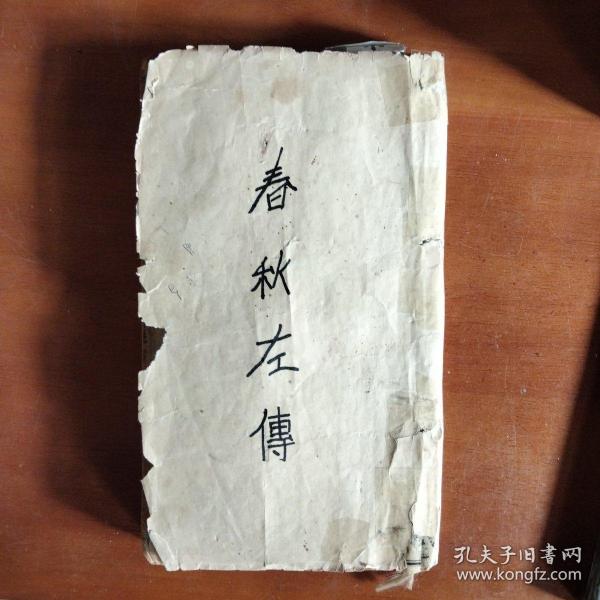 春秋左傳
孔夫子旧書网
www.kongfz.com